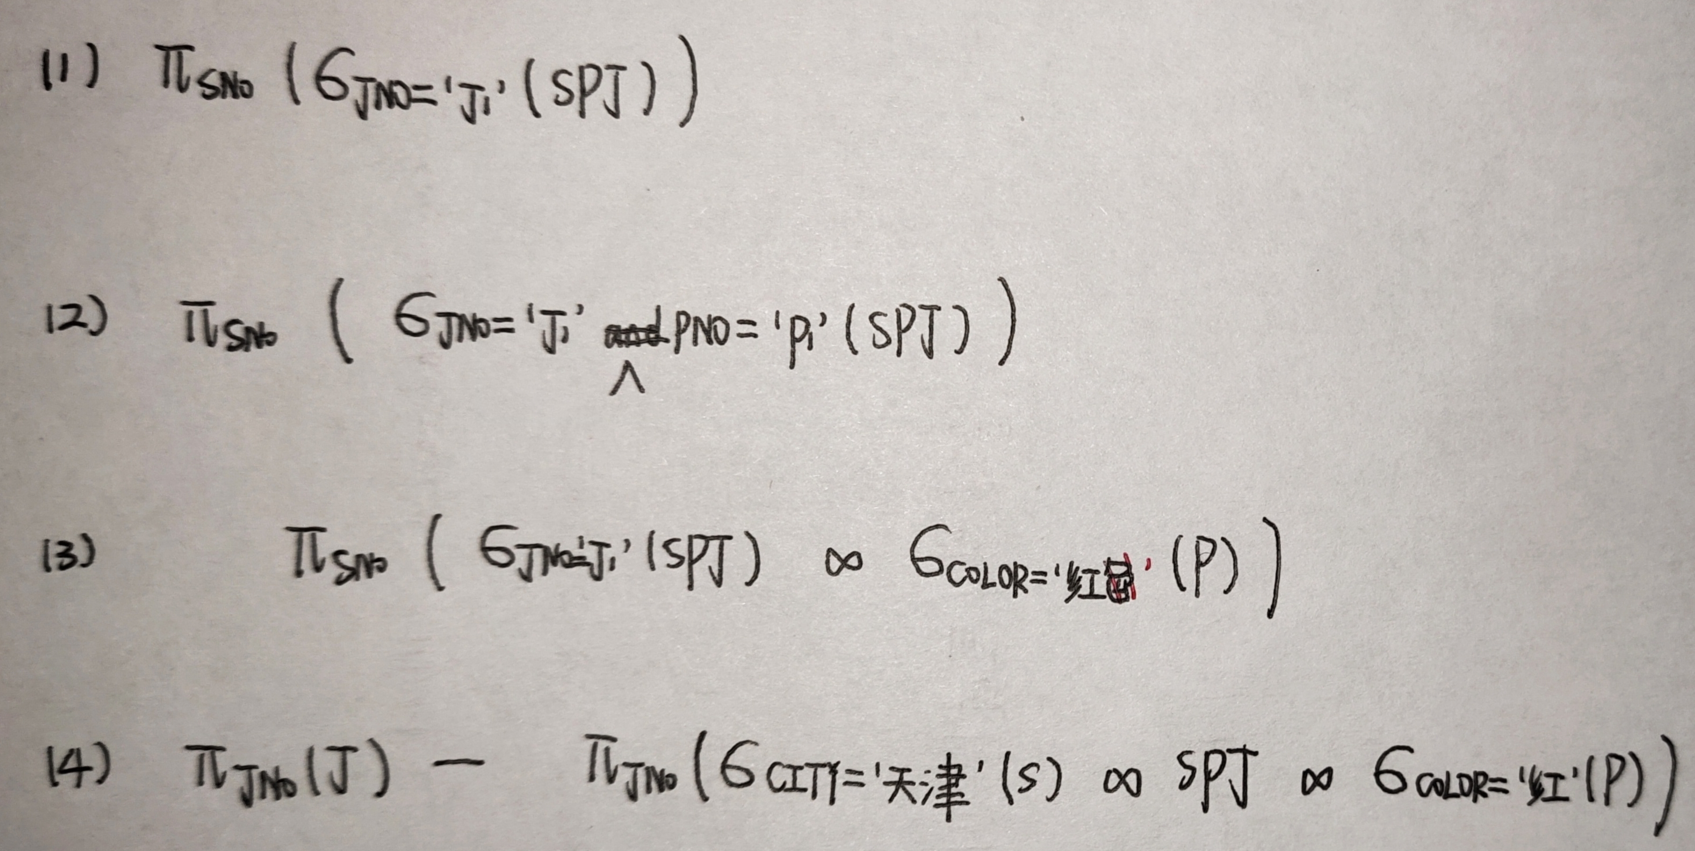 (1) π_SNO (σ_JNO='J1' (SPJ))
(2) π_SNO ( σ_JNO='J1' ∧ PNO='P1' (SPJ))
(3) π_SNO ( σ_JNO='J1' (SPJ) ∞ σ_COLOR='红' (P))
(4) π_JNO (J) — π_JNO (σ_CITY='天津' (S) ∞ SPJ ∞ σ_COLOR='红' (P))